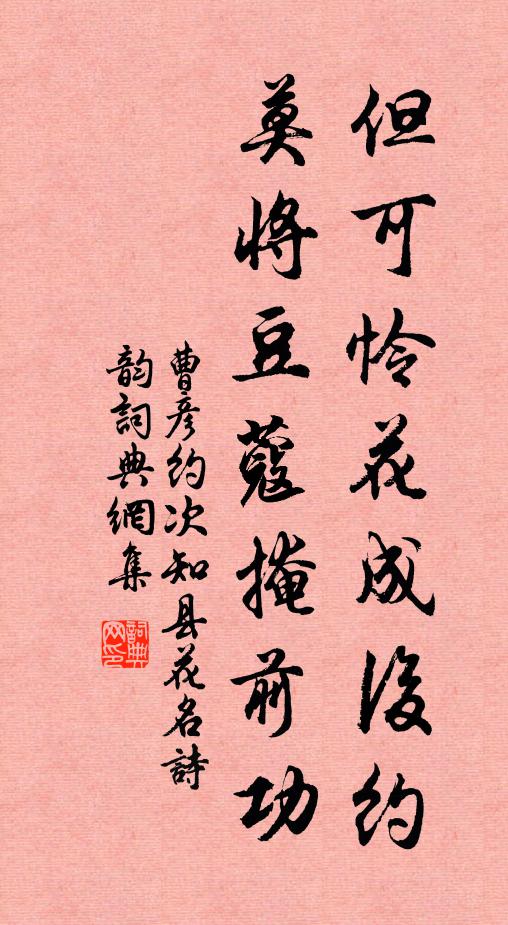 但可怜花成後约
莫將豆蔻掩前功
曹彦约次知县花名詩
韵詞典網集
詞典
网印